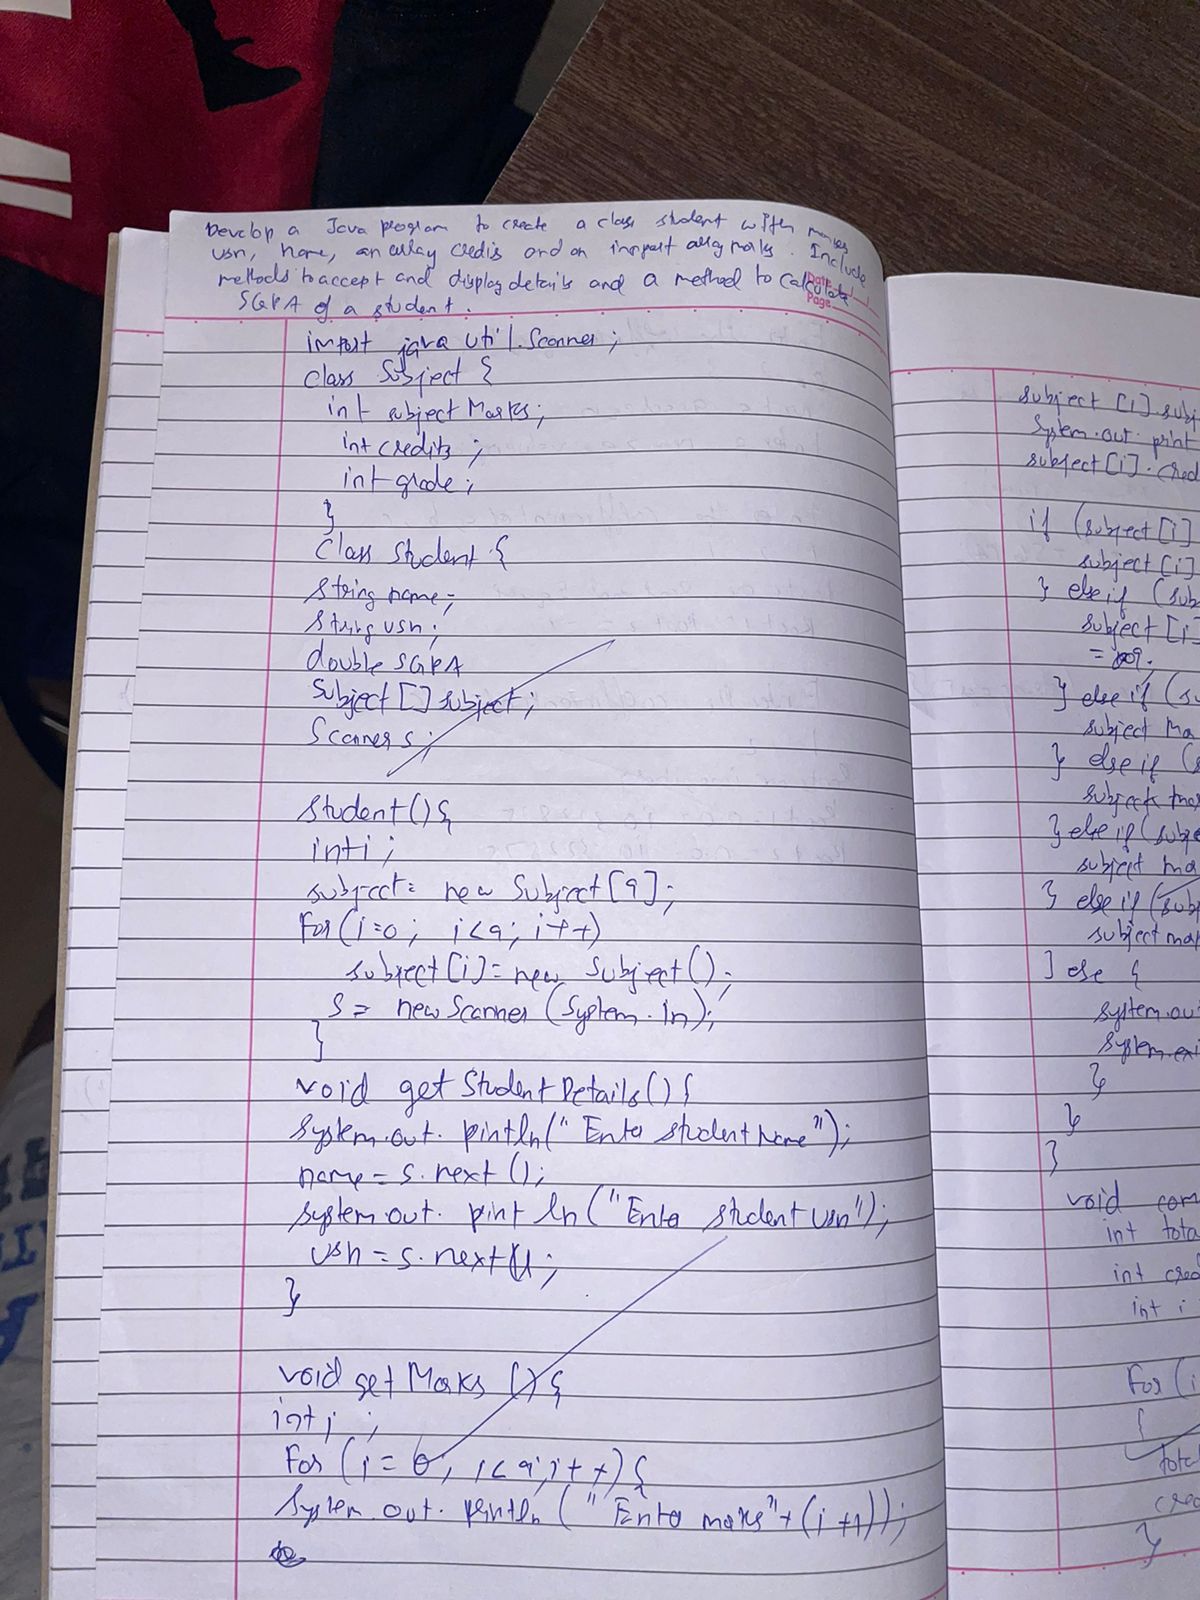 Develop a Java program to create a class student with
usn, name, an array credits and an array marks. Include
methods to accept and display details and a method to calculate
SGPA of a student.
Date
Page
import java util.Scanner;
class Subject {
int subject Marks;
int credits ;
int grade;
}
Class Student {
String name;
String usn;
double SGPA
Subject [] subject;
Scanner s;
Student () {
int i ;
subject = new Subject [9];
For (i=0; i<9; i++)
subject [i] = new Subject ();
S = new Scanner (System.in);
}
void get Student Details () {
System.out. println(" Enter student name");
name = s.next ();
System.out. print ln ("Enter student usn");
usn = s.next();
}
void get Marks () {
int i ;
For (i = 0, i<9; i++) {
System out. println ( " Enter marks"+ (i +1));
subject [i] subj
System.out print
subject [i] . cred
if (subject [i]
subject [i]
} else if (sub
subject [i]
= 9;
} else if (su
subject ma
} else if (s
subject mar
} else if (subje
subject ma
} else if (subj
subject mar
} else {
system.ou
system.exi
}
}
}
void com
int tota
int cred
int i
For (i
{
tota
cred
}